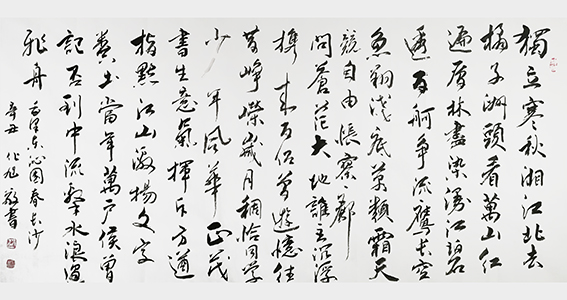 獨立寒秋湘江北去
橘子洲頭看萬山紅
遍層林盡染漫江碧
透百舸爭流鷹長空
魚翔淺底萬類霜天
競自由悵寥廓
問蒼茫大地誰主沉浮
携來百侶曾遊憶往
昔崢嶸歲月稠恰同學
少年風華正茂
書生意氣揮斥方遒
指點江山激揚文字
糞土當年萬戶侯曾
記否到中流擊水浪遏
飛舟 毛澤東沁園春長沙
辛丑 敬書